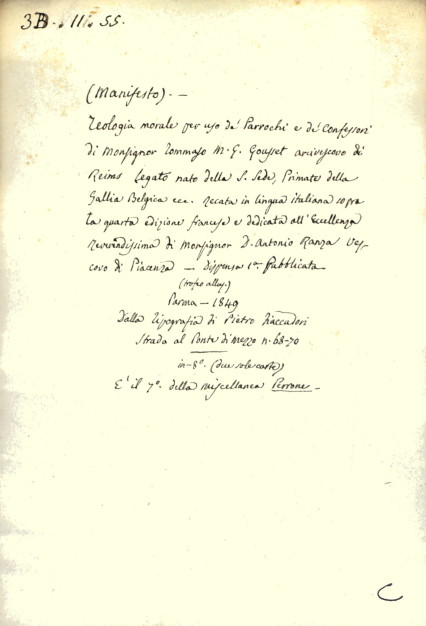 3B. II. 55.
(Manifesto). —
Teologia morale per uso de' Parrochi e de' Confessori
di Monsignor Tommaso M. G. Gousset arcivescovo di
Reims Legato nato della S. Sede, Primate della
Gallia Belgica ecc. recata in lingua italiana sopra
la quarta edizione francese e dedicata all'Eccellenza
Reverendissima di Monsignor D. Antonio Ranza Ves-
covo di Piacenza — Dispensa 1ª. Pubblicata
(trofeo alleg.)
Parma — 1849
Dalla Tipografia di Pietro Fiaccadori
Strada al Ponte di mezzo n. 68-70
in-8º. (due sole carte)
E' il 7º. della miscellanea Perrone —
C